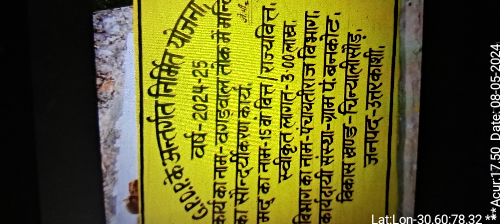 G.P.D.P. के अन्तर्गत निर्मित योजना
वर्ष - 2024-25
कार्य का नाम - वगडवाल तोक में मन्दि
का सौन्दर्यीकरण कार्य.
मद का नाम - 15 वां वित्त / राज्यवित्त.
स्वीकृत लागत - 3.00 लाख.
विभाग का नाम - पंचायतीराज विभाग.
कार्यदायी संस्था - ग्राम पं. बनकोट.
विकास खण्ड - चिन्यालीसौड़.
जनपद - उत्तरकाशी.
Lat:Lon-30.60:78.32 **
**Acur:17.50 Date:08-05-2024